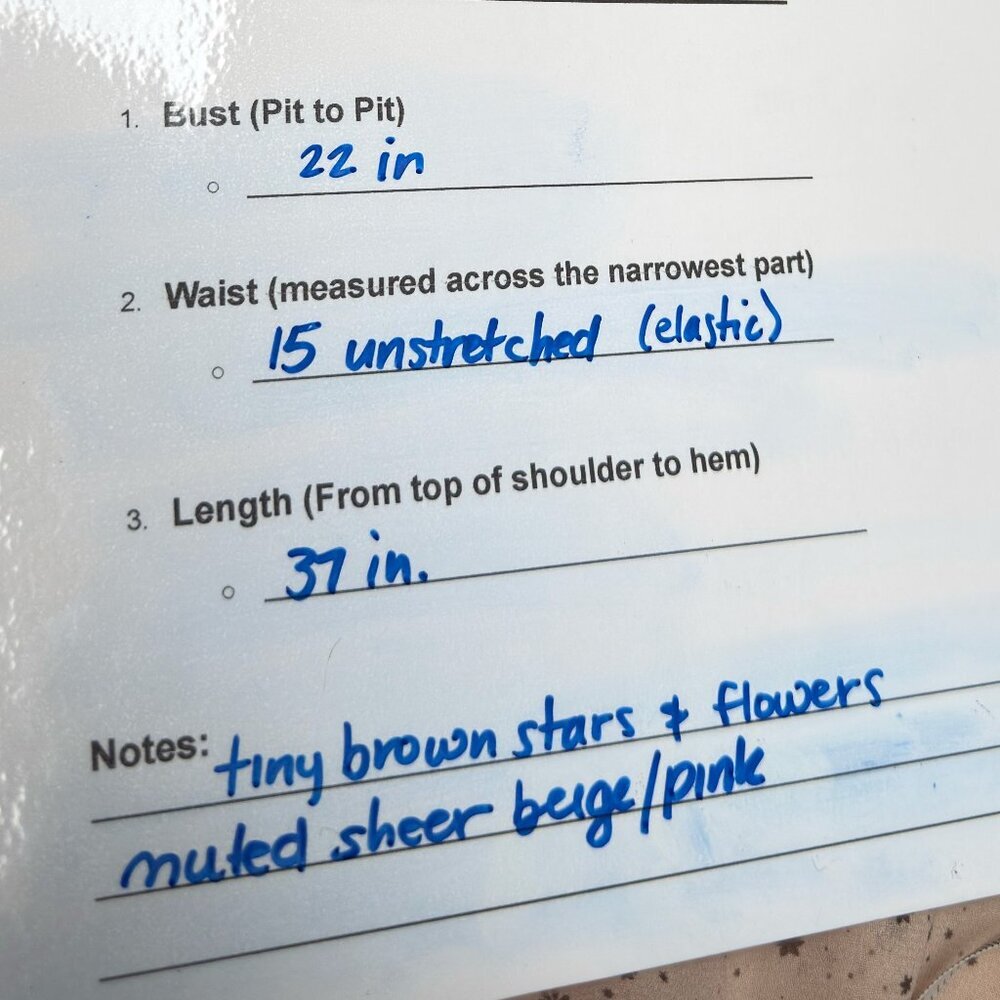 1. Bust (Pit to Pit)
22 in
2. Waist (measured across the narrowest part)
15 unstretched (elastic)
3. Length (From top of shoulder to hem)
37 in.
Notes: tiny brown stars & flowers
muted sheer beige/pink